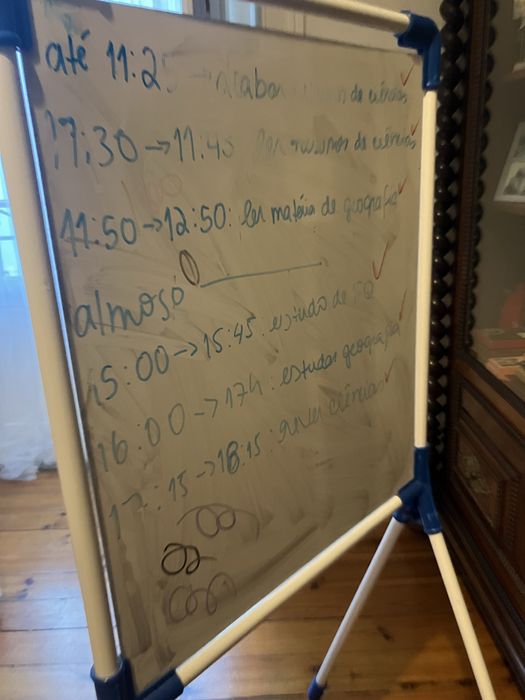 até 11:25 → acabar de ciências
17:30 → 11:45 ler resumos de ciências
11:50 → 12:50: ler matéria de geografia
almoso
15:00 → 15:45: estudo de FQ
16:00 → 17h: estudar geografia
17:15 → 18:15: rever ciências